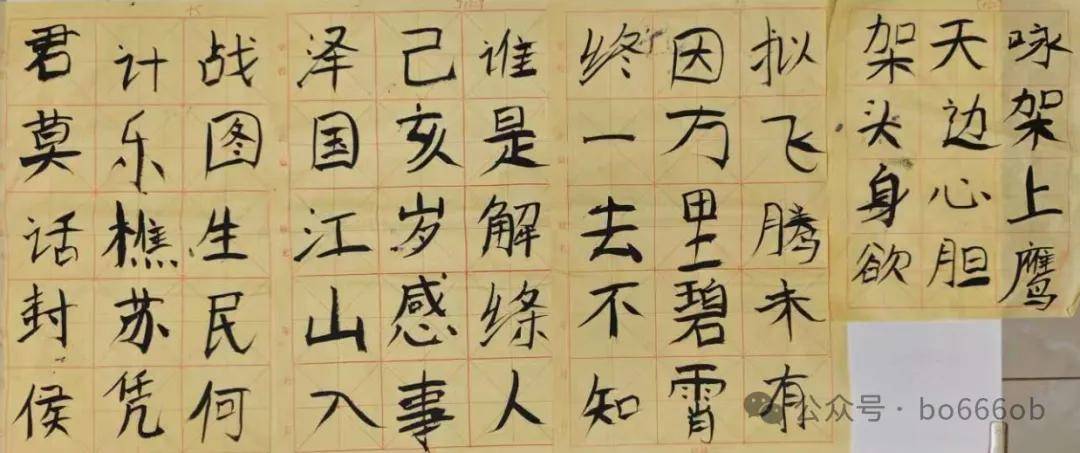 咏架上鹰
天边心胆
架头身欲
拟飞腾未有
因万里碧霄
终一去不知
谁是解绦人
己亥岁感事
泽国江山入
战图生民何
计乐樵苏凭
君莫话封侯
公众号 · bo666ob